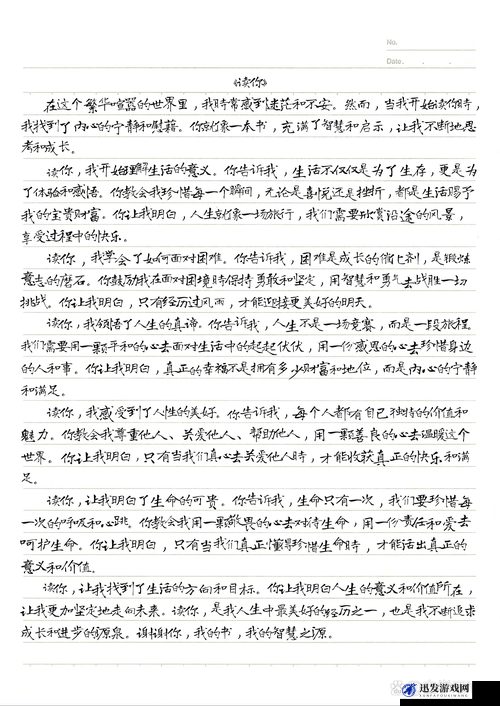 No.
Date.
《读你》
在这个繁华喧嚣的世界里，我时常感到迷茫和不安。然而，当我开始读你时，
我找到了内心的宁静和慰藉。你就像一本书，充满了智慧和启示，让我不断地思
考和成长。
读你，我开始理解生活的意义。你告诉我，生活不仅仅是为了生存，更是为
了体验和感悟。你教会我珍惜每一个瞬间，无论是喜悦还是挫折，都是生活赐予
我的宝贵财富。你让我明白，人生就像一场旅行，我们需要欣赏沿途的风景，
享受过程中的快乐。
读你，我学会了如何面对困难。你告诉我，困难是成长的催化剂，是锻炼
意志的磨石。你鼓励我在面对困境时保持勇敢和坚定，用智慧和勇气去战胜一切
挑战。你让我明白，只有经历过风雨，才能迎接更美好的明天。
读你，我领悟了人生的真谛。你告诉我，人生不是一场竞赛，而是一段旅程。
我们需要用一颗平和的心去面对生活中的起起伏伏，用一份感恩的心去珍惜身边
的人和事。你让我明白，真正的幸福不是拥有多少财富和地位，而是内心的宁静
和满足。
读你，我感受到了人性的美好。你告诉我，每个人都有自己独特的价值和
魅力。你教会我尊重他人、关爱他人、帮助他人，用一颗善良的心去温暖这个
世界。你让我明白，只有当我们真心去关爱他人时，才能收获真正的快乐和满
足。
读你，让我明白了生命的可贵。你告诉我，生命只有一次，我们要珍惜每
一次的呼吸和心跳。你教会我用一颗敬畏的心去对待生命，用一份责任和爱去
呵护生命。你让我明白，只有当我们真正懂得珍惜生命时，才能活出真正的
意义和价值。
读你，让我找到了生活的方向和目标。你让我明白人生的意义和价值所在，
让我更加坚定地走向未来。读你，是我人生中最美好的经历之一，也是我不断追求
成长和进步的源泉。谢谢你，我的书，我的智慧之源。
迅发游戏网
XUNFAYOUXIWANG